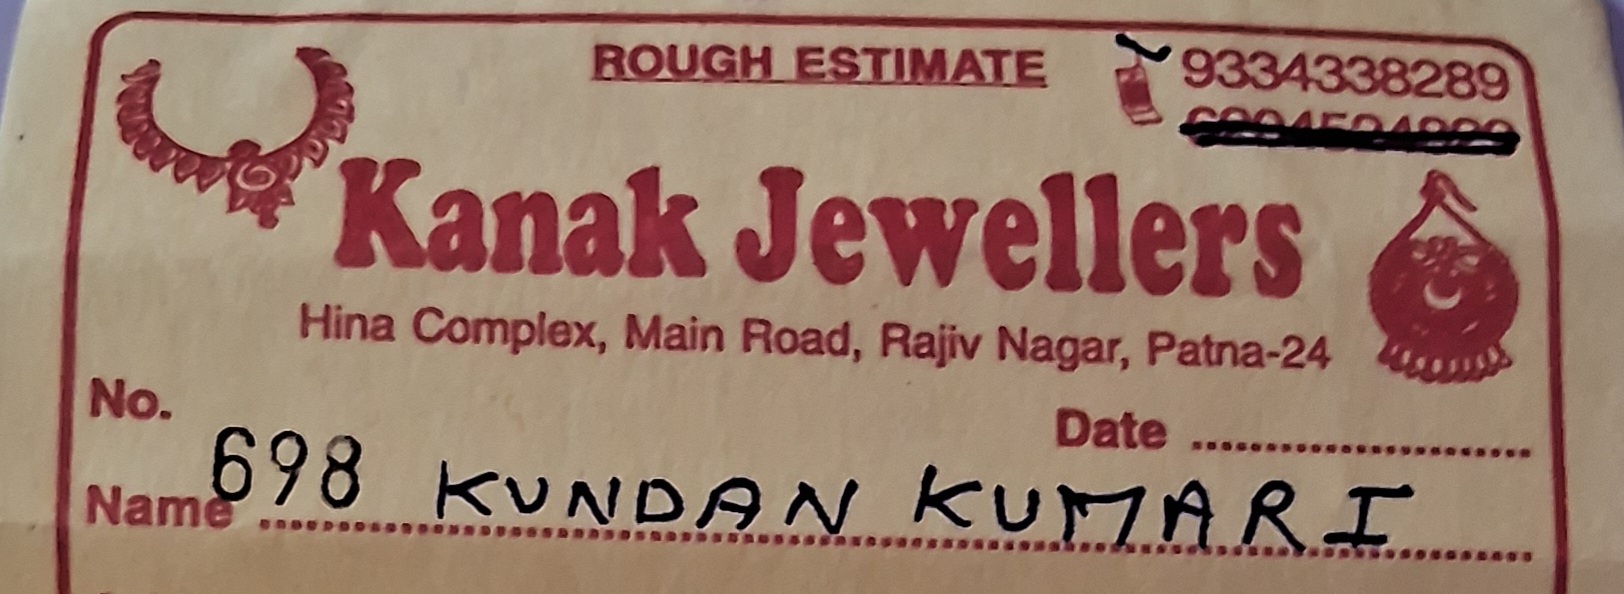 ROUGH ESTIMATE 9334338289
Kanak Jewellers
Hina Complex, Main Road, Rajiv Nagar, Patna-24
No. 698
Date ........................
Name KUNDAN KUMARI